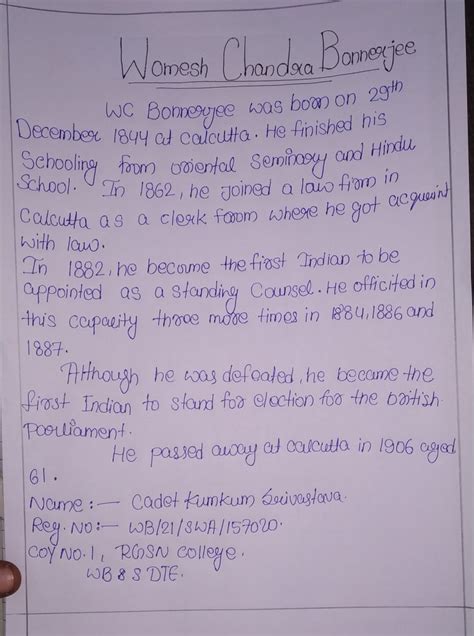 Womesh Chandra Bonnerjee
WC Bonnerjee was born on 29th
December 1844 at Calcutta. He finished his
Schooling from oriental Seminary and Hindu
School. In 1862, he joined a law firm in
Calcutta as a clerk from where he got acquaint
with law.
In 1882, he become the first Indian to be
appointed as a Standing Counsel. He officited in
this capacity three more times in 1884, 1886 and
1887.
Although he was defeated, he became the
first Indian to stand for election for the british
Parliament.
He passed away at calcutta in 1906 aged
61.
Name :- Cadet Kumkum Srivastava.
Reg. No :- WB/21/SWA/157020.
COY NO. 1, RGSN College.
WB & S DTE.